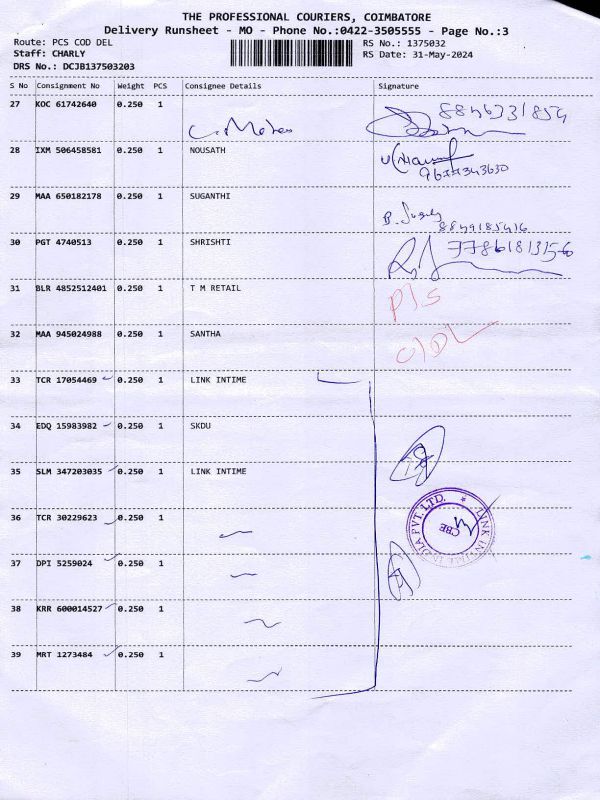 THE PROFESSIONAL COURIERS, COIMBATORE
Delivery Runsheet - MO - Phone No.:0422-3505555 - Page No.:3
Route: PCS COD DEL
RS No.: 1375032
Staff: CHARLY
RS Date: 31-May-2024
DRS No.: DCJB137503203
S No Consignment No Weight PCS Consignee Details Signature
27 KOC 61742640 0.250 1
C. Mohan
28 IXM 506458581 0.250 1 NOUSATH
9677343630
29 MAA 650182178 0.250 1 SUGANTHI
8849185416
30 PGT 4740513 0.250 1 SHRISHTI
7786181356
31 BLR 4852512401 0.250 1 T M RETAIL
P/S
32 MAA 945024988 0.250 1 SANTHA
33 TCR 17054469 0.250 1 LINK INTIME
34 EDQ 15983982 0.250 1 SKDU
35 SLM 347203035 0.250 1 LINK INTIME
36 TCR 30229623 0.250 1
LINK INTIME INDIA PVT. LTD.
CBE
37 DPI 5259024 0.250 1
38 KRR 600014527 0.250 1
39 MRT 1273484 0.250 1